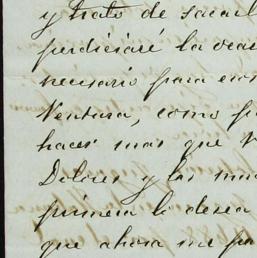 y trato de sacarl
perdiciaré la ocas
necesario para en
Ventura, como p
haces mas que
Dolores y los mu
primera lo desea
que ahora me pa